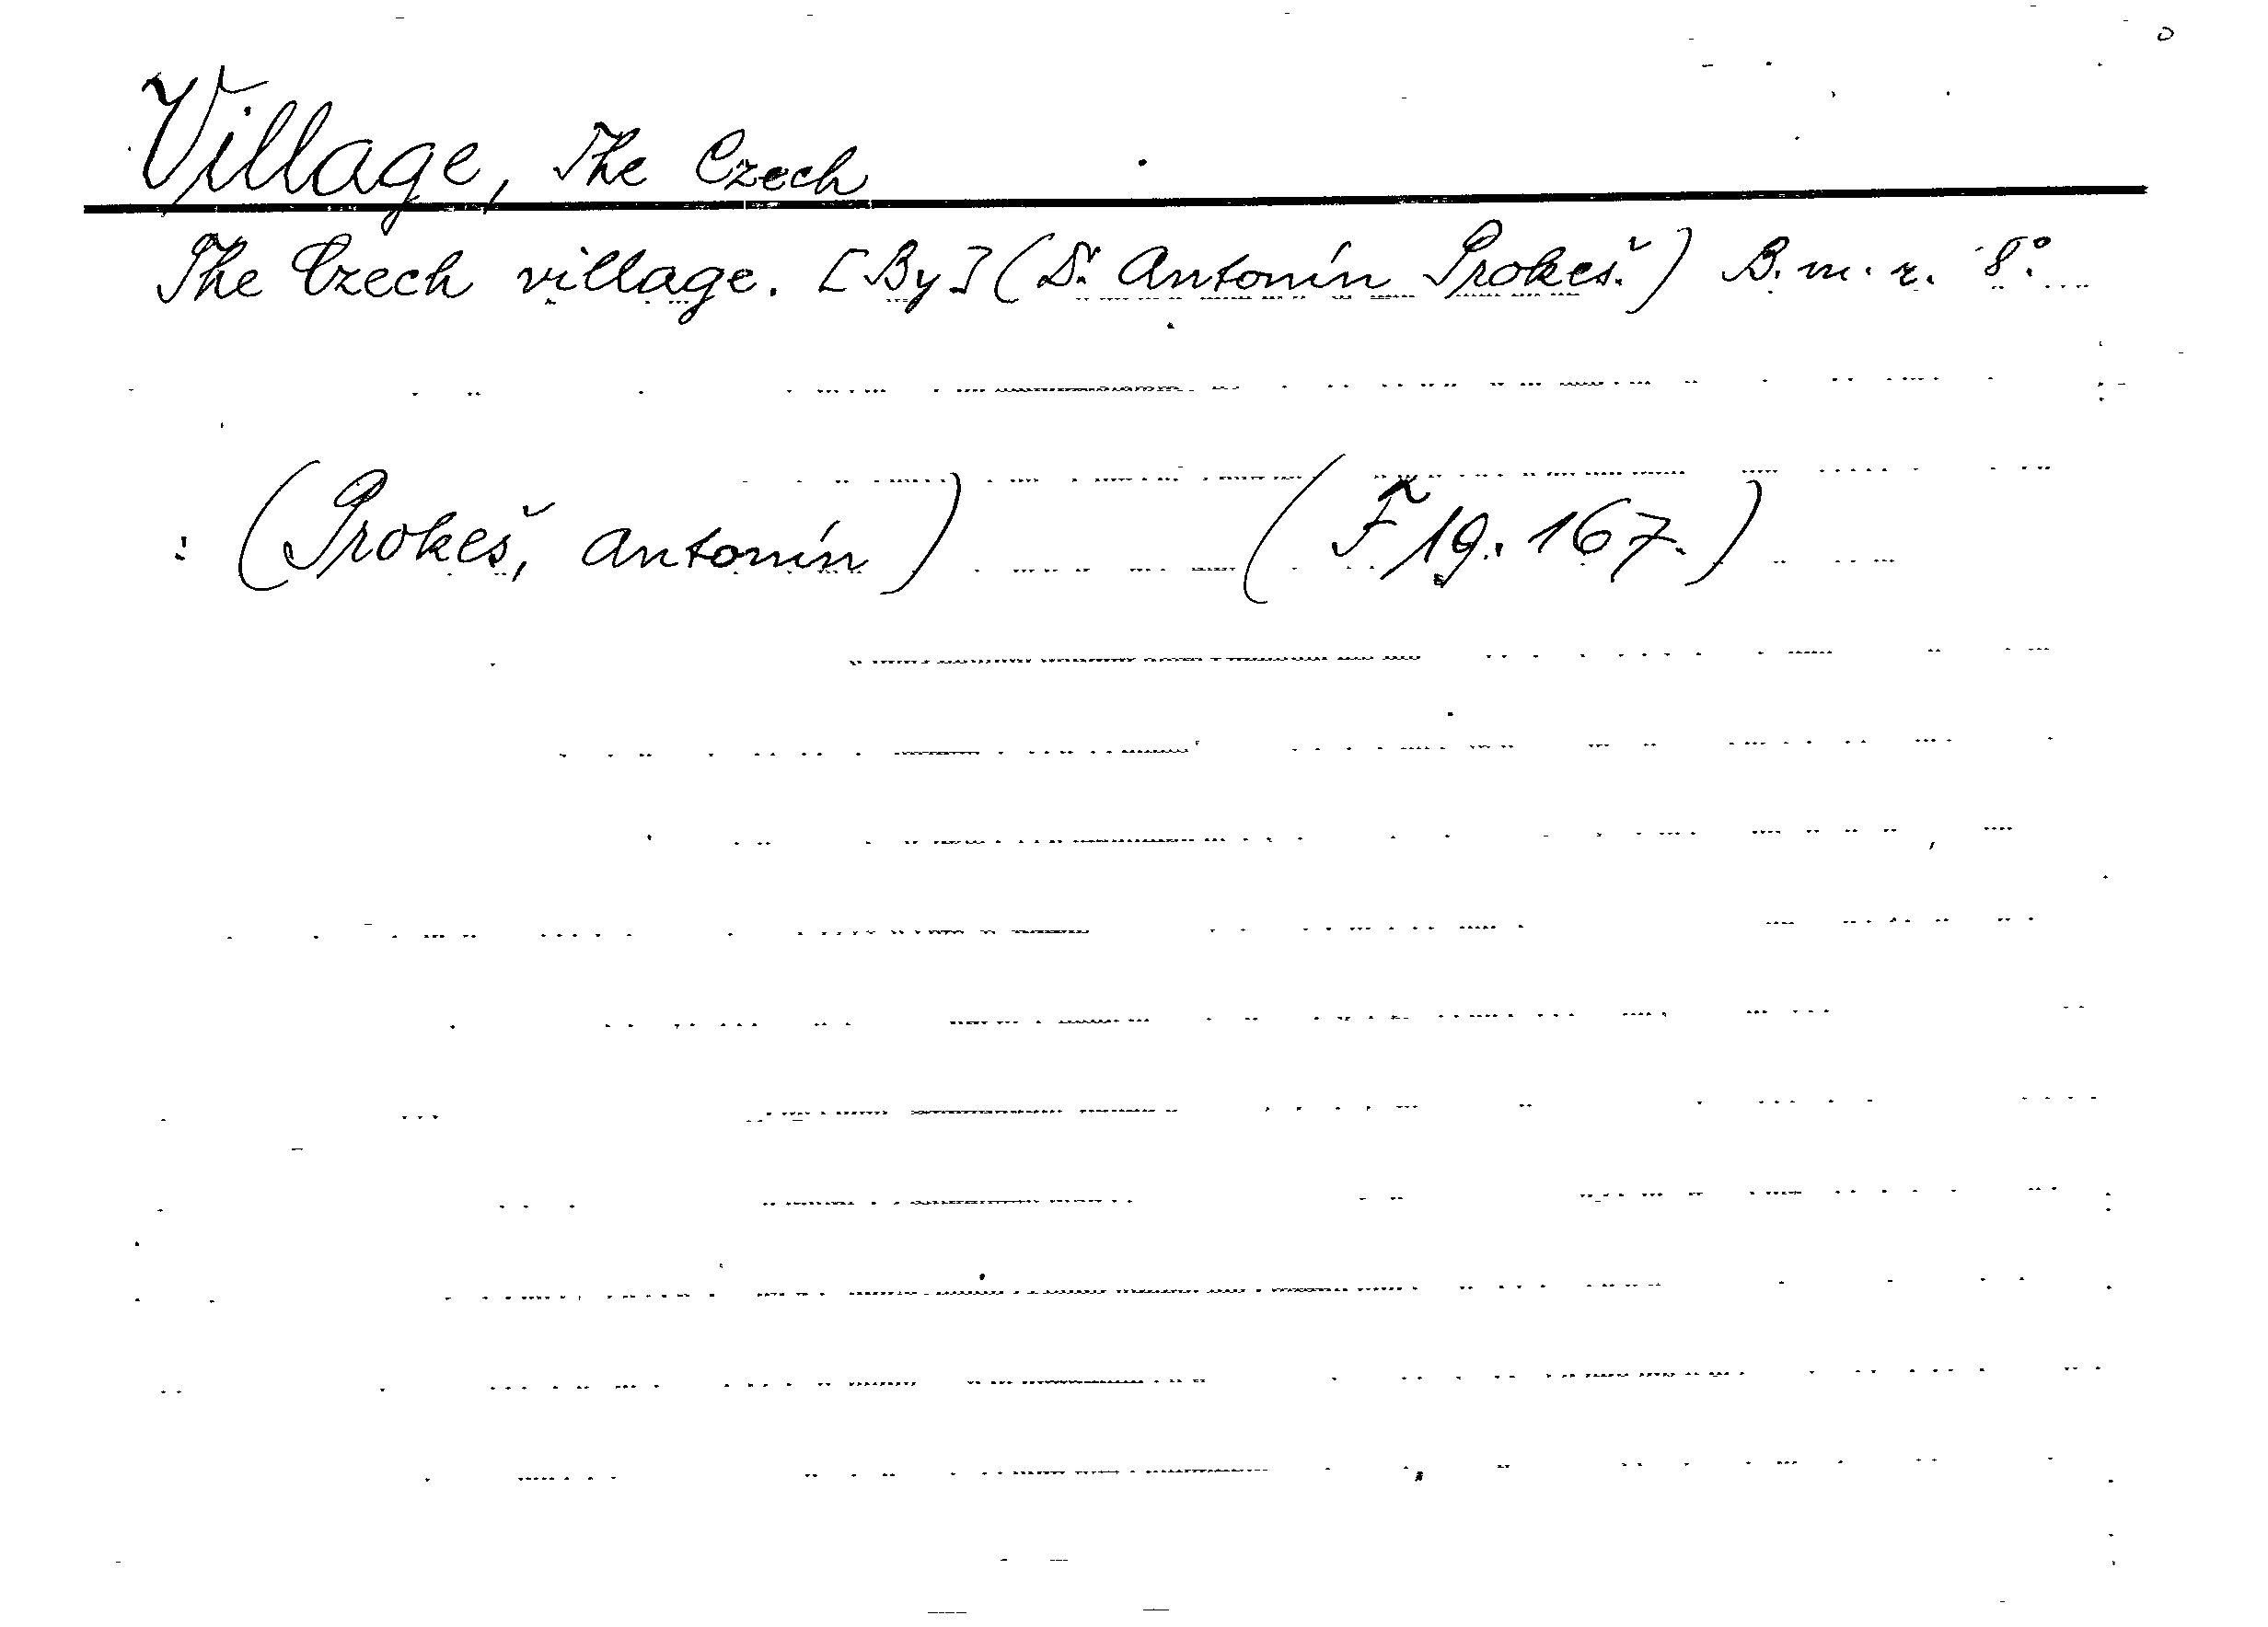 Village, The Czech
The Czech village. [By] (Dr. Antonín Prokeš.) B. m. r. 8°.
: (Prokeš, Antonín) (F 19. 167.)